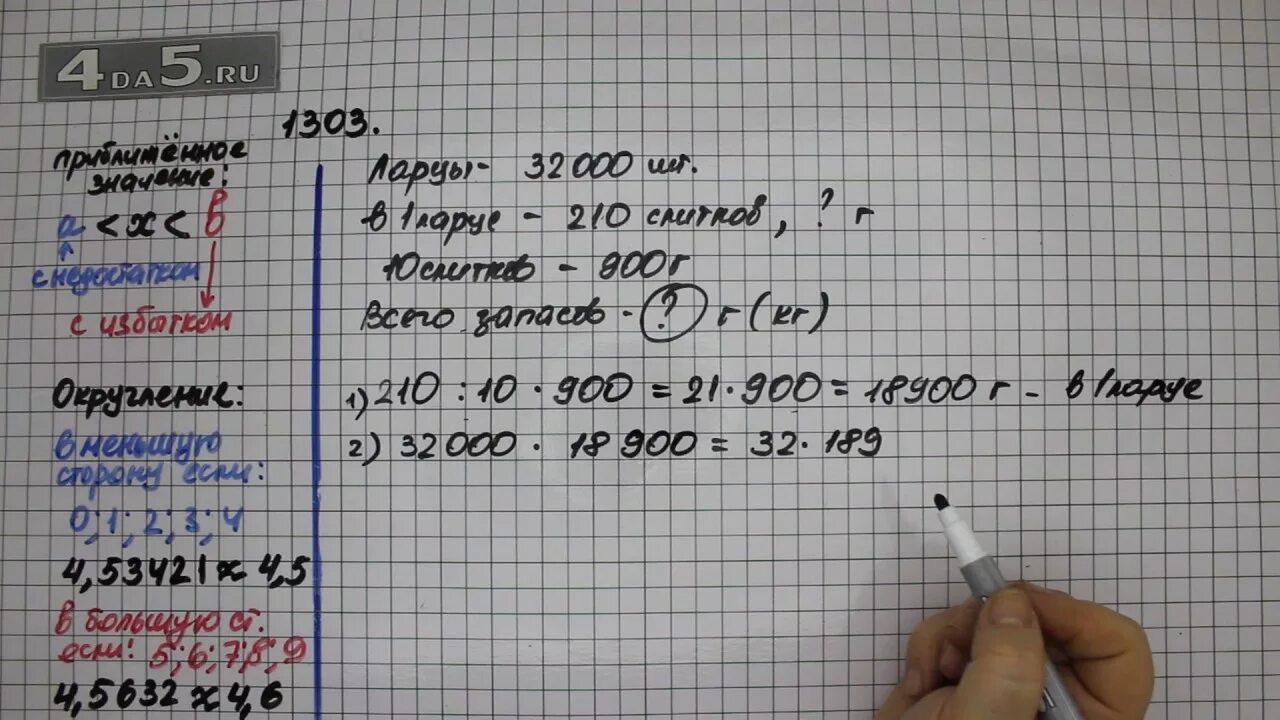 4DA5.RU
1303.
приближённое
значение:
a < x < b
с недостатком
с избытком
Округление:
в меньшую
сторону если:
0; 1; 2; 3; 4
4,53421 ≈ 4,5
в большую ст.
если: 5; 6; 7; 8; 9
4,5632 ≈ 4,6
Ларцы - 32 000 шт.
в 1 ларце - 210 слитков, ? г
10 слитков - 900 г
Всего запасов - ? г (кг)
1) 210 : 10 · 900 = 21 · 900 = 18900 г - в 1 ларце
2) 32 000 · 18 900 = 32 · 189